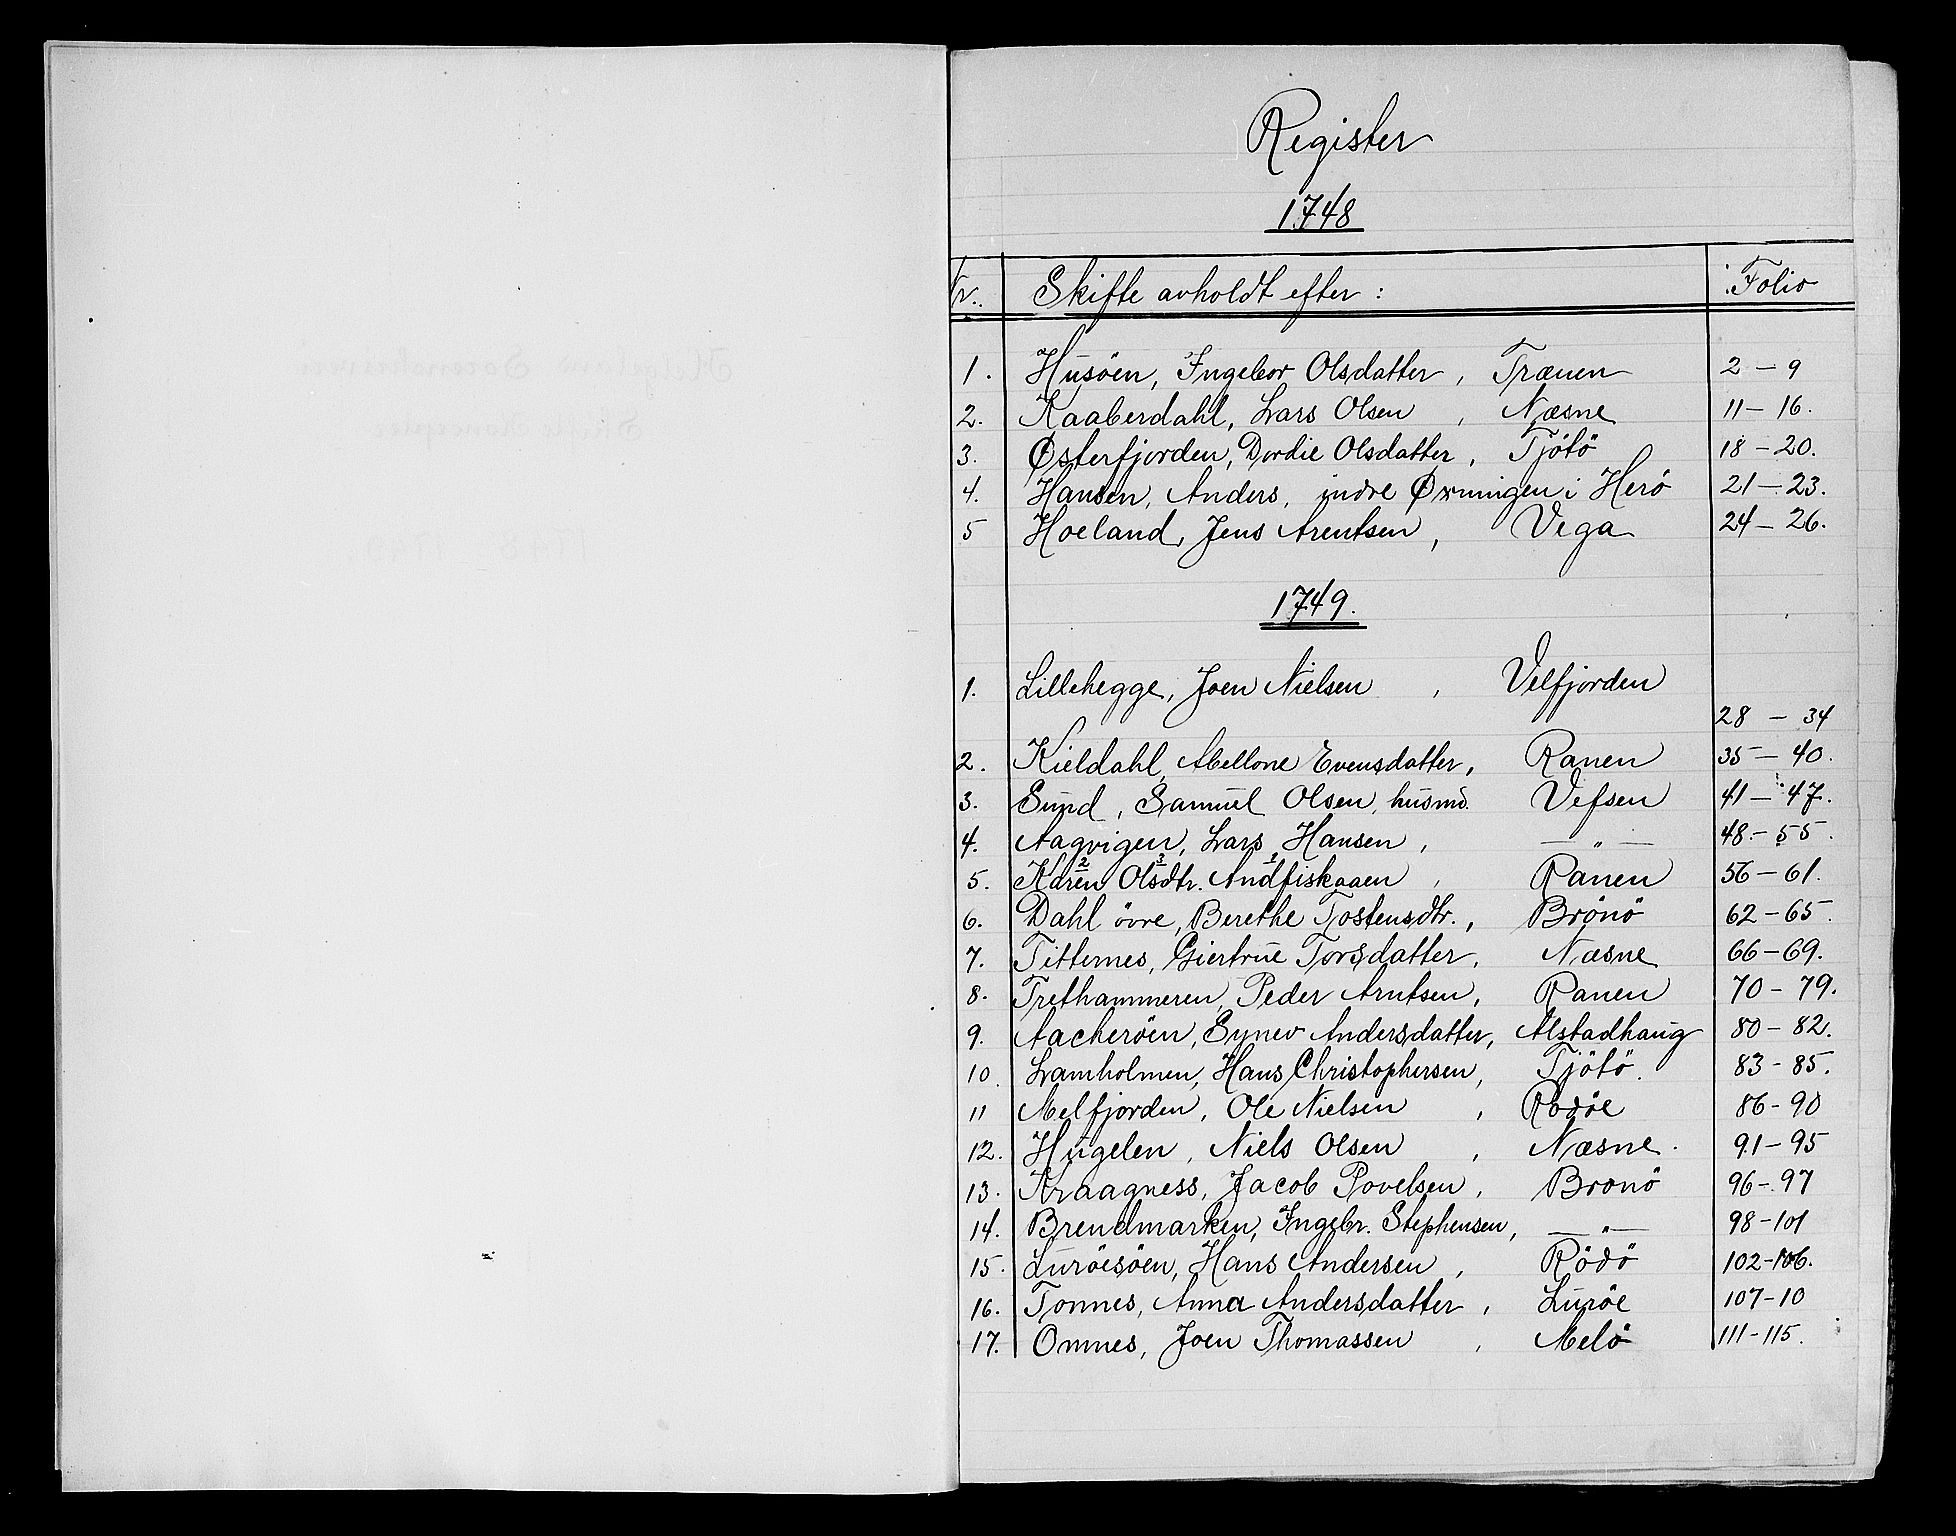 Register
1748
Nr. Skifte avholdt efter: Folio
1. Husöen, Ingebor Olsdatter, Trænen 2 - 9
2. Kaaberdahl, Lars Olsen, Næsne 11 - 16.
3. Østerfjorden, Dordie Olsdatter, Tjötö 18 - 20.
4. Hansen, Anders, indre Øxningen i Herö 21 - 23.
5 Hoeland, Jens Arentsen, Vega 24 - 26.
1749.
1. Lillehegge, Joen Nielsen, Velfjorden
28 - 34
2. Kieldahl, Abellone Evensdatter, Ranen 35 - 40.
3. Sund, Samuel Olsen, husmd. Vefsen 41 - 47.
4. Aagvigen, Lars Hansen, — " — 48. - 55.
5. Karen 2 Olsdtr. 3 Andfiskaaen 1, Ranen 56 - 61.
6. Dahl övre, Berethe Tostensdtr., Brönö 62 - 65.
7. Titternes, Giertrue Torsdatter, Næsne 66 - 69.
8. Trethammeren, Peder Arntsen, Ranen 70 - 79.
9. Aacheröen, Synev Andersdatter, Alstadhaug 80 - 82.
10. Lamholmen, Hans Christophersen, Tjötö. 83 - 85.
11 Melfjorden, Ole Nielsen, Rödöe 86 - 90
12. Hugelen, Niels Olsen, Næsne. 91 - 95
13. Kraagness, Jacob Povelsen, Brönö 96 - 97
14. Brendmarken, Ingebr. Stephensen, — " — 98 - 101
15. Luröesöen, Hans Andersen, Rödö 102 - 106.
16. Tonnes, Anna Andersdatter, Luröe 107 - 10
17. Omnes, Joen Thomassen, Melö 111 - 115.